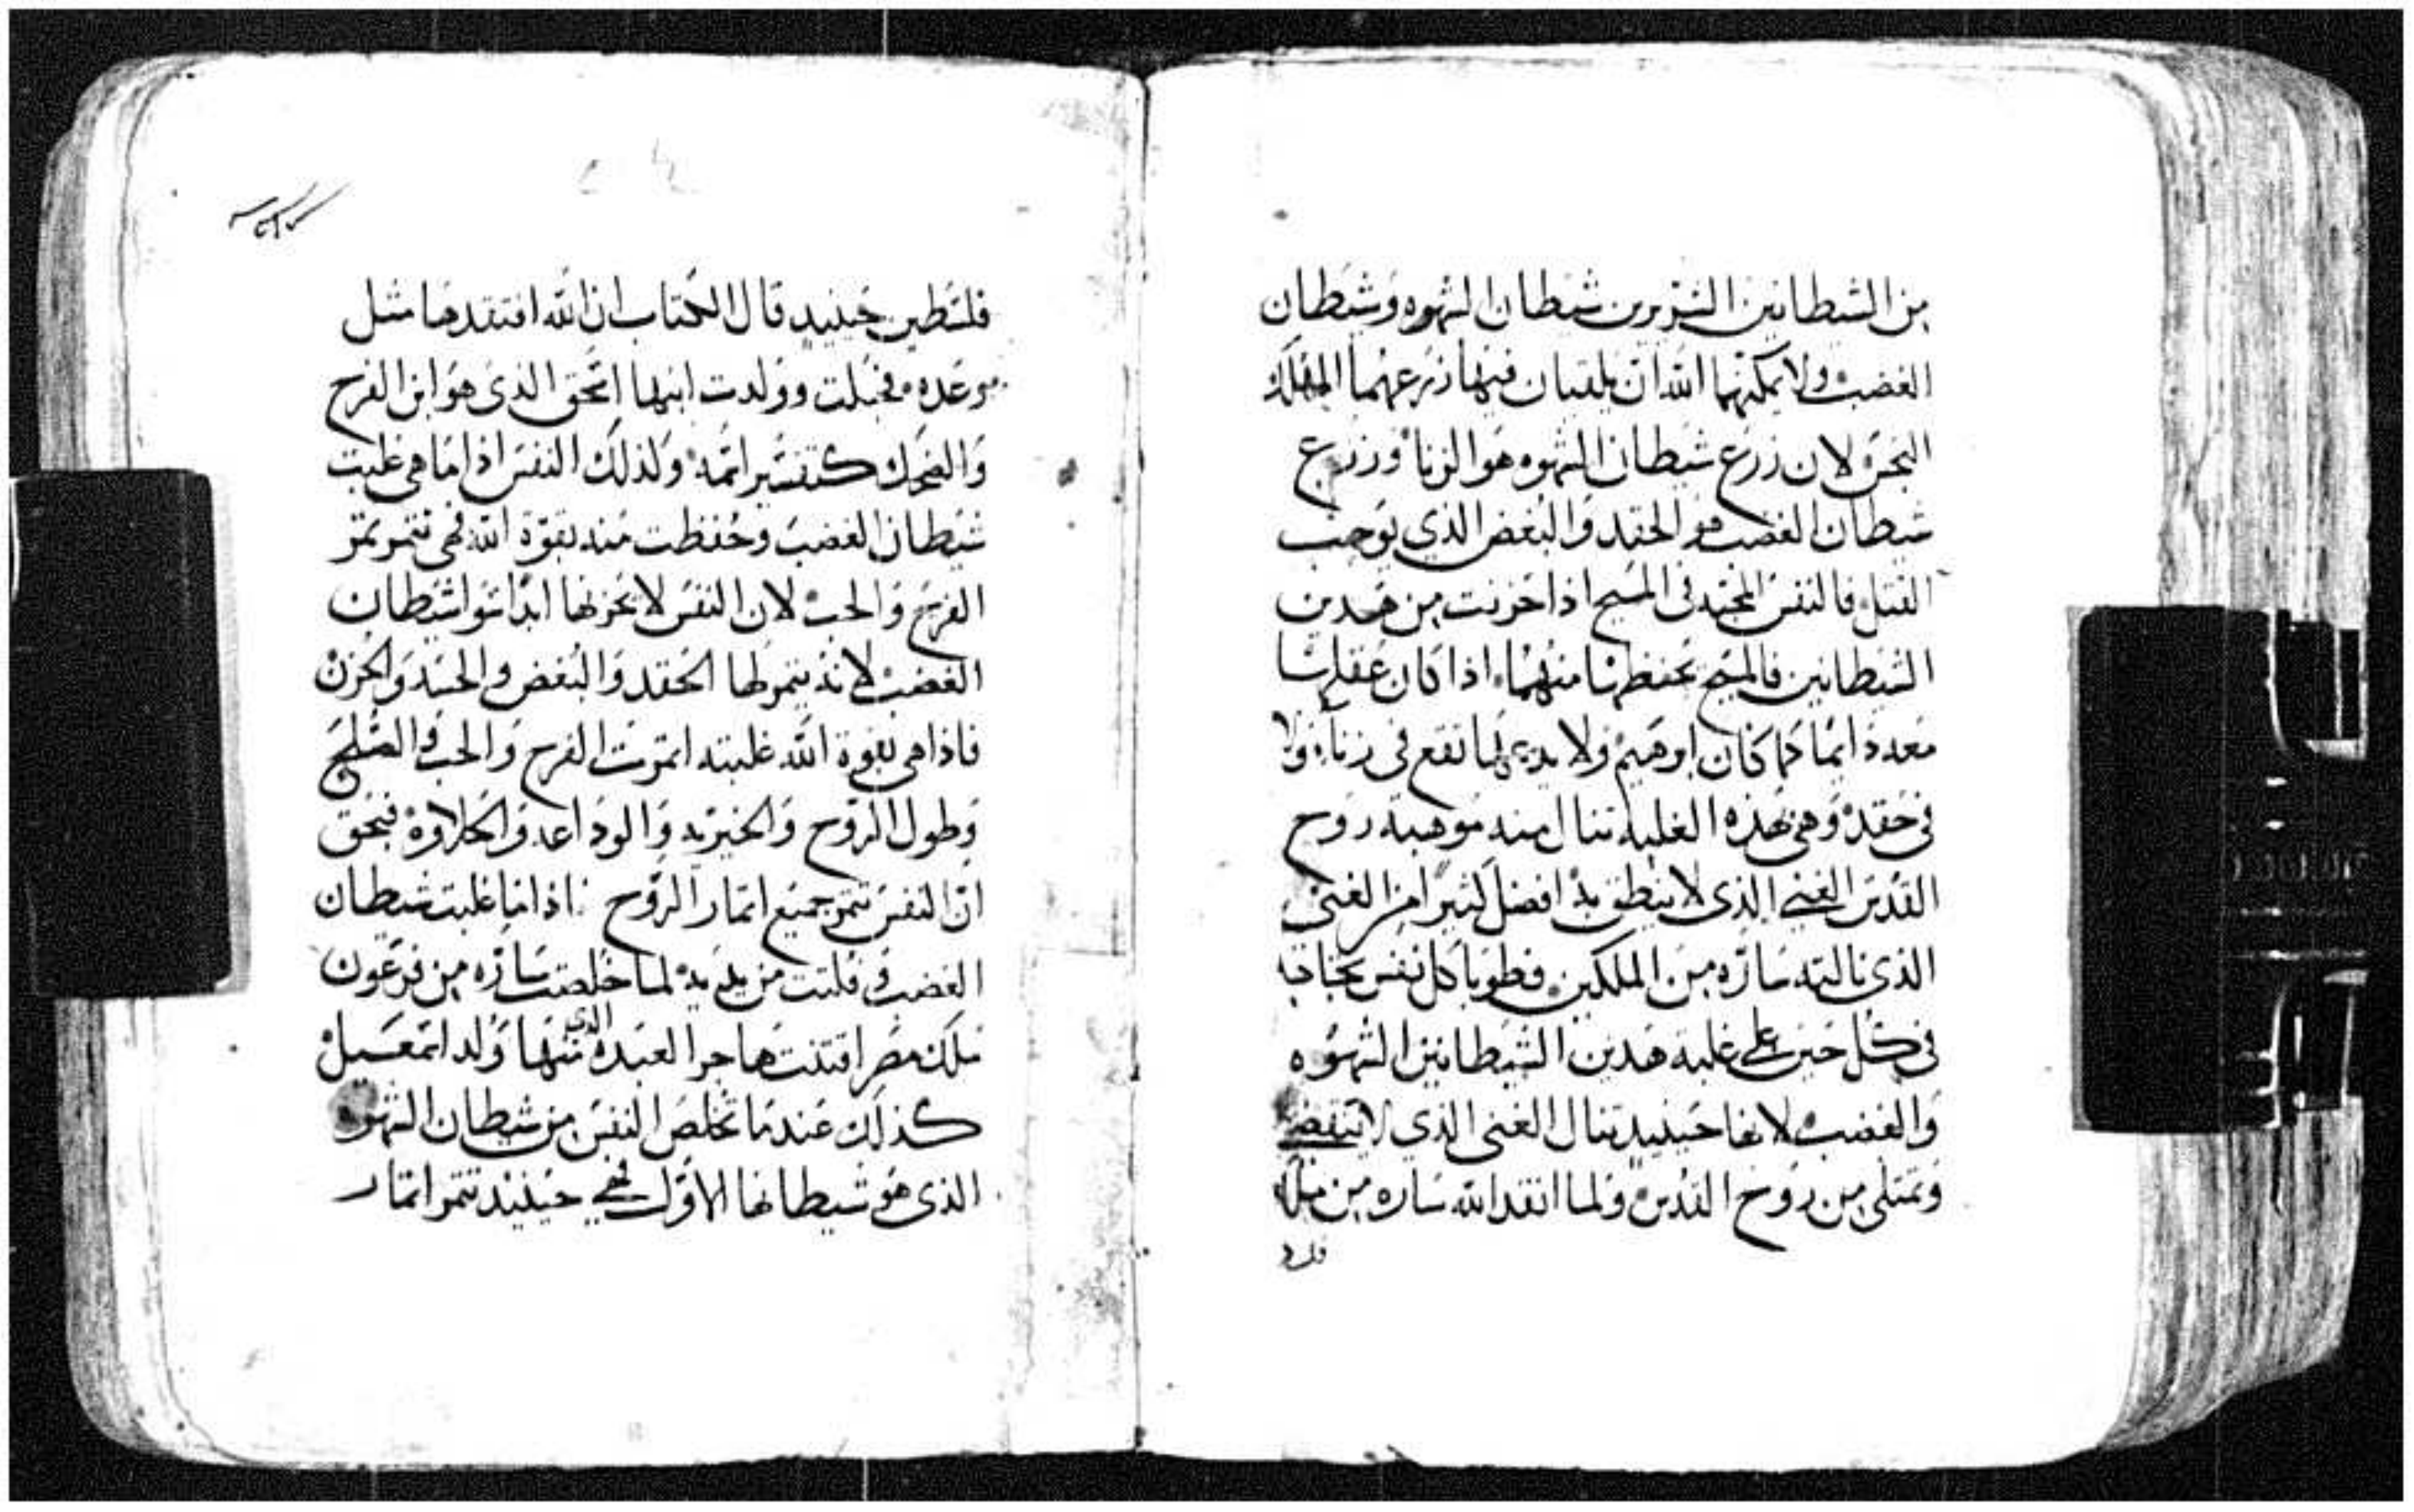 من الشيطانين الشريرين شيطان الشهوه وشيطان
الغضب ولا يمكنهما الله ان يلقيان فيها زرعهما
النجس لان زرع شيطان الشهوه هو الزنا وزرع
شيطان الغضب هو الحقد والبغض الذي يوجب
القتل فالنفس المجتهد في المسيح اذا حزنت من هدين
الشيطانين فالمسيح يحفظها منهما اذا كان عقلها
معدد ايما كما كان ابرهيم ولا يدعها تقع في زناء ولا
في حقد وهي بهذه الغلبه تنال منه موهبة روح
القدس الغني الذي لا ينطق به افضل كثيرا من الغني
الذي نالته ساره من الملكين فطوبا كل نفس
في كل حين على غلبة هدين الشيطانين الشهوه
والغضب لانها حينيد تنال الغنى الذي لا ينقضي
وتمتلي من روح القدس ولما انقد الله ساره من ملك
فلسطين حينيد قال الكتاب ان الله افتقدها مثل
موعده فحبلت وولدت ابنها اسحق الذي هو ابن الفرح
والضحك كتفسير اسمه ولذلك النفس اذا ما هي غلبت
شيطان الغضب وحفظت منه بقوة الله فهي تتمر تمر
الفرح والحب لان النفس لا يحزنها ابدا سوا شيطان
الغضب لانه يتمر لها الحقد والبغض والحسد والحزن
فاذا هي بقوة الله غلبته اتمرت الفرح والحب والصلح
وطول الروح والخيريه والوداعه والحلاوة فبحق
ان النفس تتمر جميع اتمار الروح اذا ما غلبت شيطان
الغضب وفلتت من يديه لما خلصت ساره من فرعون
ملك مصر اقتنت هاجر العبده الذي منها ولد اسمعيل
كذلك عندما تخلص النفس من شيطان الشهوه
الذي هو شيطانها الاول فهي حينيد تتمر اتمار